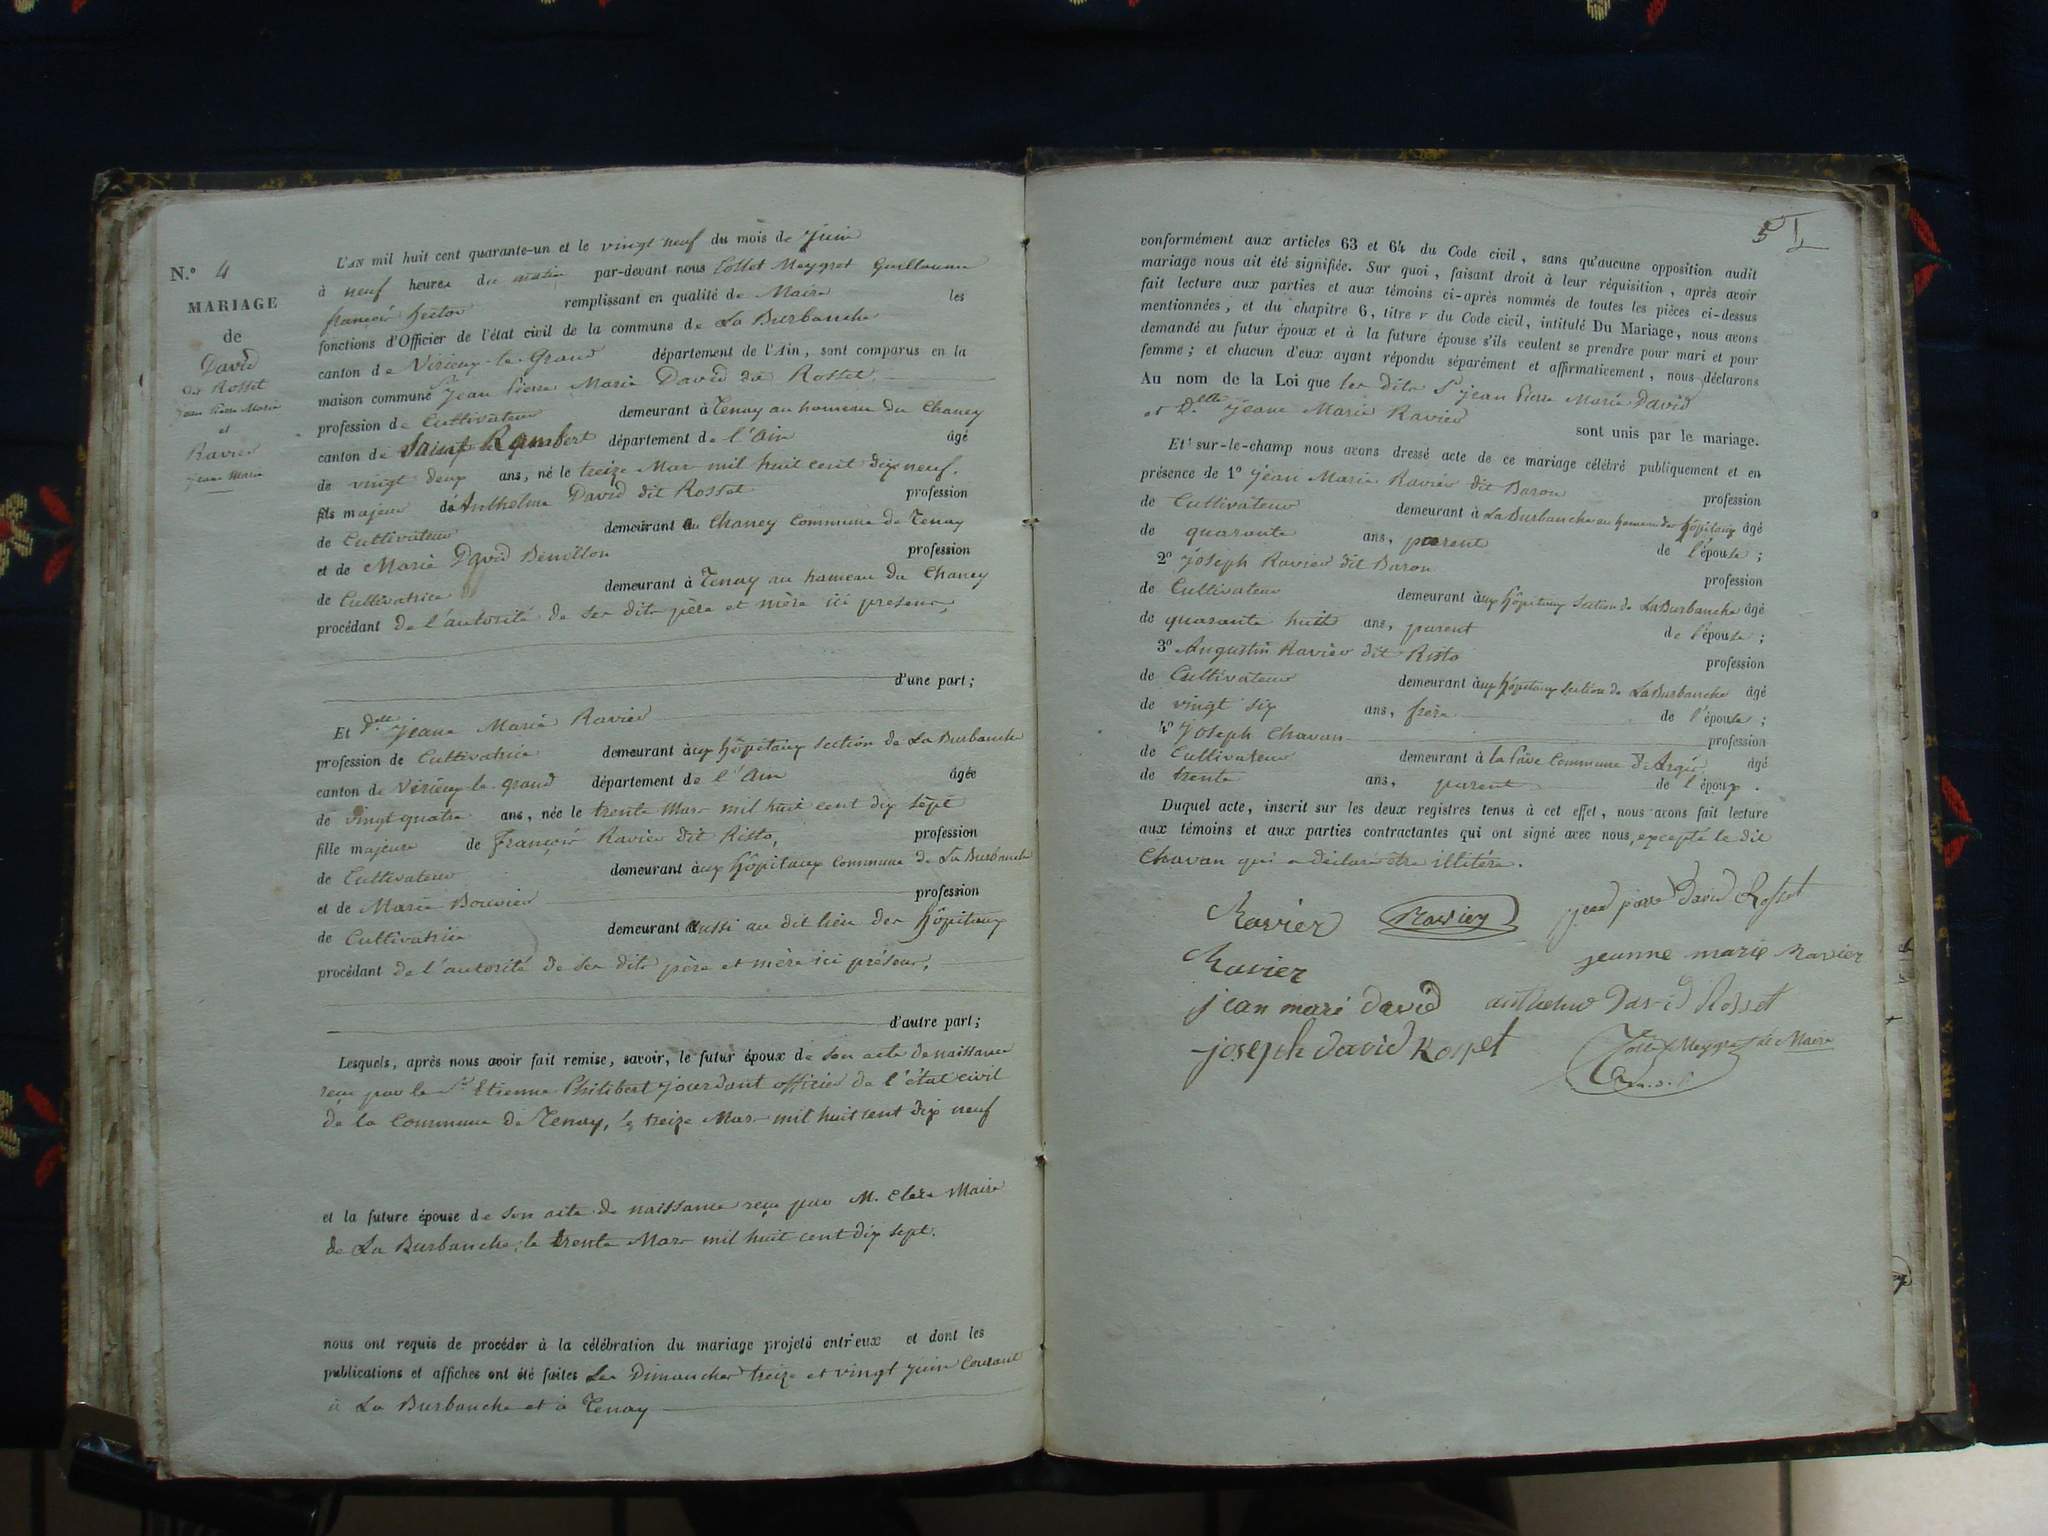 N.º 4
MARIAGE
de
David
dit Rosset
Jean Pierre Marie
et
Ravier
Jeane Marie
L'AN mil huit cent quarante-un et le vingt neuf du mois de Juin
à neuf heures du matin par-devant nous Collet Meygret Guillaume
françois hector remplissant en qualité de Maire les
fonctions d'Officier de l'état civil de la commune de La Burbanche
canton de Virieux-le-Grand département de l'Ain, sont comparus en la
maison commune Jean Pierre Marie David dit Rosset
profession de Cultivateur demeurant à Tenay au hameau du Chaney
canton de Saint Rambert département de l'Ain âgé
de vingt deux ans, né le treize Mars mil huit cent dix neuf.
fils majeur de Anthelme David dit Rosset profession
de Cultivateur demeurant au Chaney Commune de Tenay
et de Marie David Benillon profession
de Cultivatrice demeurant à Tenay au hameau du Chaney
procédant de l'autorité de ses dits père et mère ici présens,
d'une part;
Et Delle Jeane Marie Ravier
profession de Cultivatrice demeurant aux hôpitaux section de La Burbanche
canton de Virieux-le-grand département de l'Ain âgée
de vingt quatre ans, née le trente Mars mil huit cent dix sept
fille majeure de françois Ravier dit Risto, profession
de Cultivateur demeurant aux hôpitaux Commune de La Burbanche
et de Marie Bouvier profession
de Cultivatrice demeurant aussi au dit lieu des hôpitaux
procédant de l'autorité de ses dits père et mère ici présens,
d'autre part;
Lesquels, après nous avoir fait remise, savoir, le futur époux de son acte de naissance
reçu par le Sr Etienne Philibert Jourdant officier de l'état civil
de la Commune de Tenay, le treize Mars mil huit cent dix neuf
et la future épouse de son acte de naissance reçu par M. Clerc Maire
de La Burbanche, le trente Mars mil huit cent dix sept.
nous ont requis de procéder à la célébration du mariage projeté entr'eux et dont les
publications et affiches ont été faites les Dimanches treize et vingt Juin Courant
à La Burbanche et à Tenay
5
conformément aux articles 63 et 64 du Code civil, sans qu'aucune opposition audit
mariage nous ait été signifiée. Sur quoi, faisant droit à leur réquisition, après avoir
fait lecture aux parties et aux témoins ci-après nommés de toutes les pièces ci-dessus
mentionnées, et du chapitre 6, titre v du Code civil, intitulé Du Mariage, nous avons
demandé au futur époux et à la future épouse s'ils veulent se prendre pour mari et pour
femme; et chacun d'eux ayant répondu séparément et affirmativement, nous déclarons
Au nom de la Loi que les dits Sr Jean Pierre Marie David
et Delle Jeane Marie Ravier sont unis par le mariage.
Et sur-le-champ nous avons dressé acte de ce mariage célébré publiquement et en
présence de 1º Jean Marie Ravier dit Baron profession
de Cultivateur demeurant à La Burbanche au hameau des hôpitaux âgé
de quarante ans, parent de l'épouse;
2º Joseph Ravier dit Baron profession
de Cultivateur demeurant aux hôpitaux section de La Burbanche âgé
de quarante huit ans, parent de l'épouse;
3º Augustin Ravier dit Risto profession
de Cultivateur demeurant aux hôpitaux section de La Burbanche âgé
de vingt six ans, frère de l'épouse;
4º Joseph Chavan profession
de Cultivateur demeurant à la Pave Commune d'Argis âgé
de trente ans, parent de l'époux.
Duquel acte, inscrit sur les deux registres tenus à cet effet, nous avons fait lecture
aux témoins et aux parties contractantes qui ont signé avec nous, excepté le dit
Chavan qui a déclaré être illitéré.
Ravier Ravier jean pierre David Rosset
Ravier jeanne marie Ravier
jean marie david anthelme David Rosset
joseph david Rosset Collet Meygret Maire